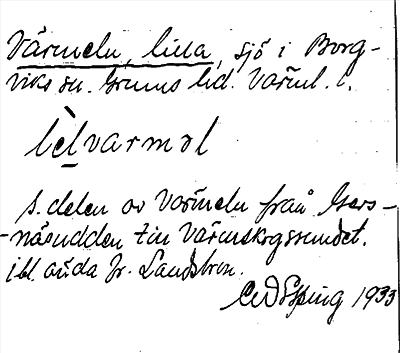 Värmeln, lilla, sjö i Borg-
viks sn. Grums hd. Värml. l.
lɛ̀lvarməl
S. delen av Värmeln från Gers-
näsudden till Värmskogssundet.
ibl. ända fr. Landsbron.
1933